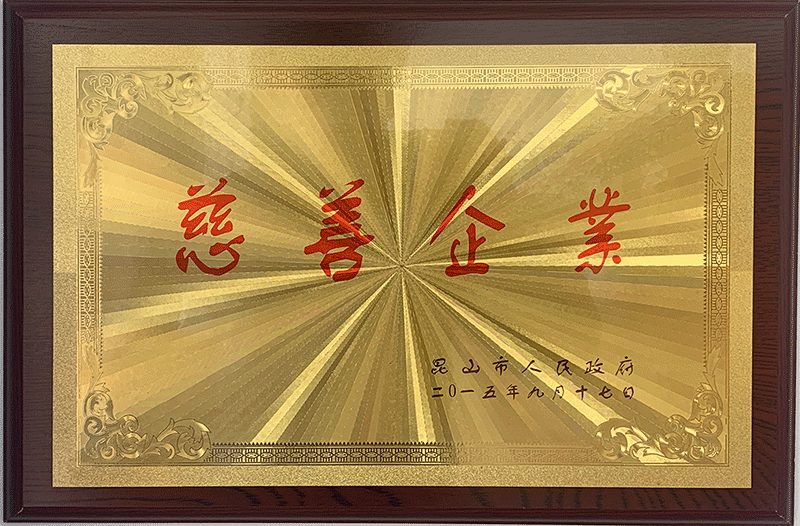 慈善企業
昆山市人民政府
二0一五年九月十七日